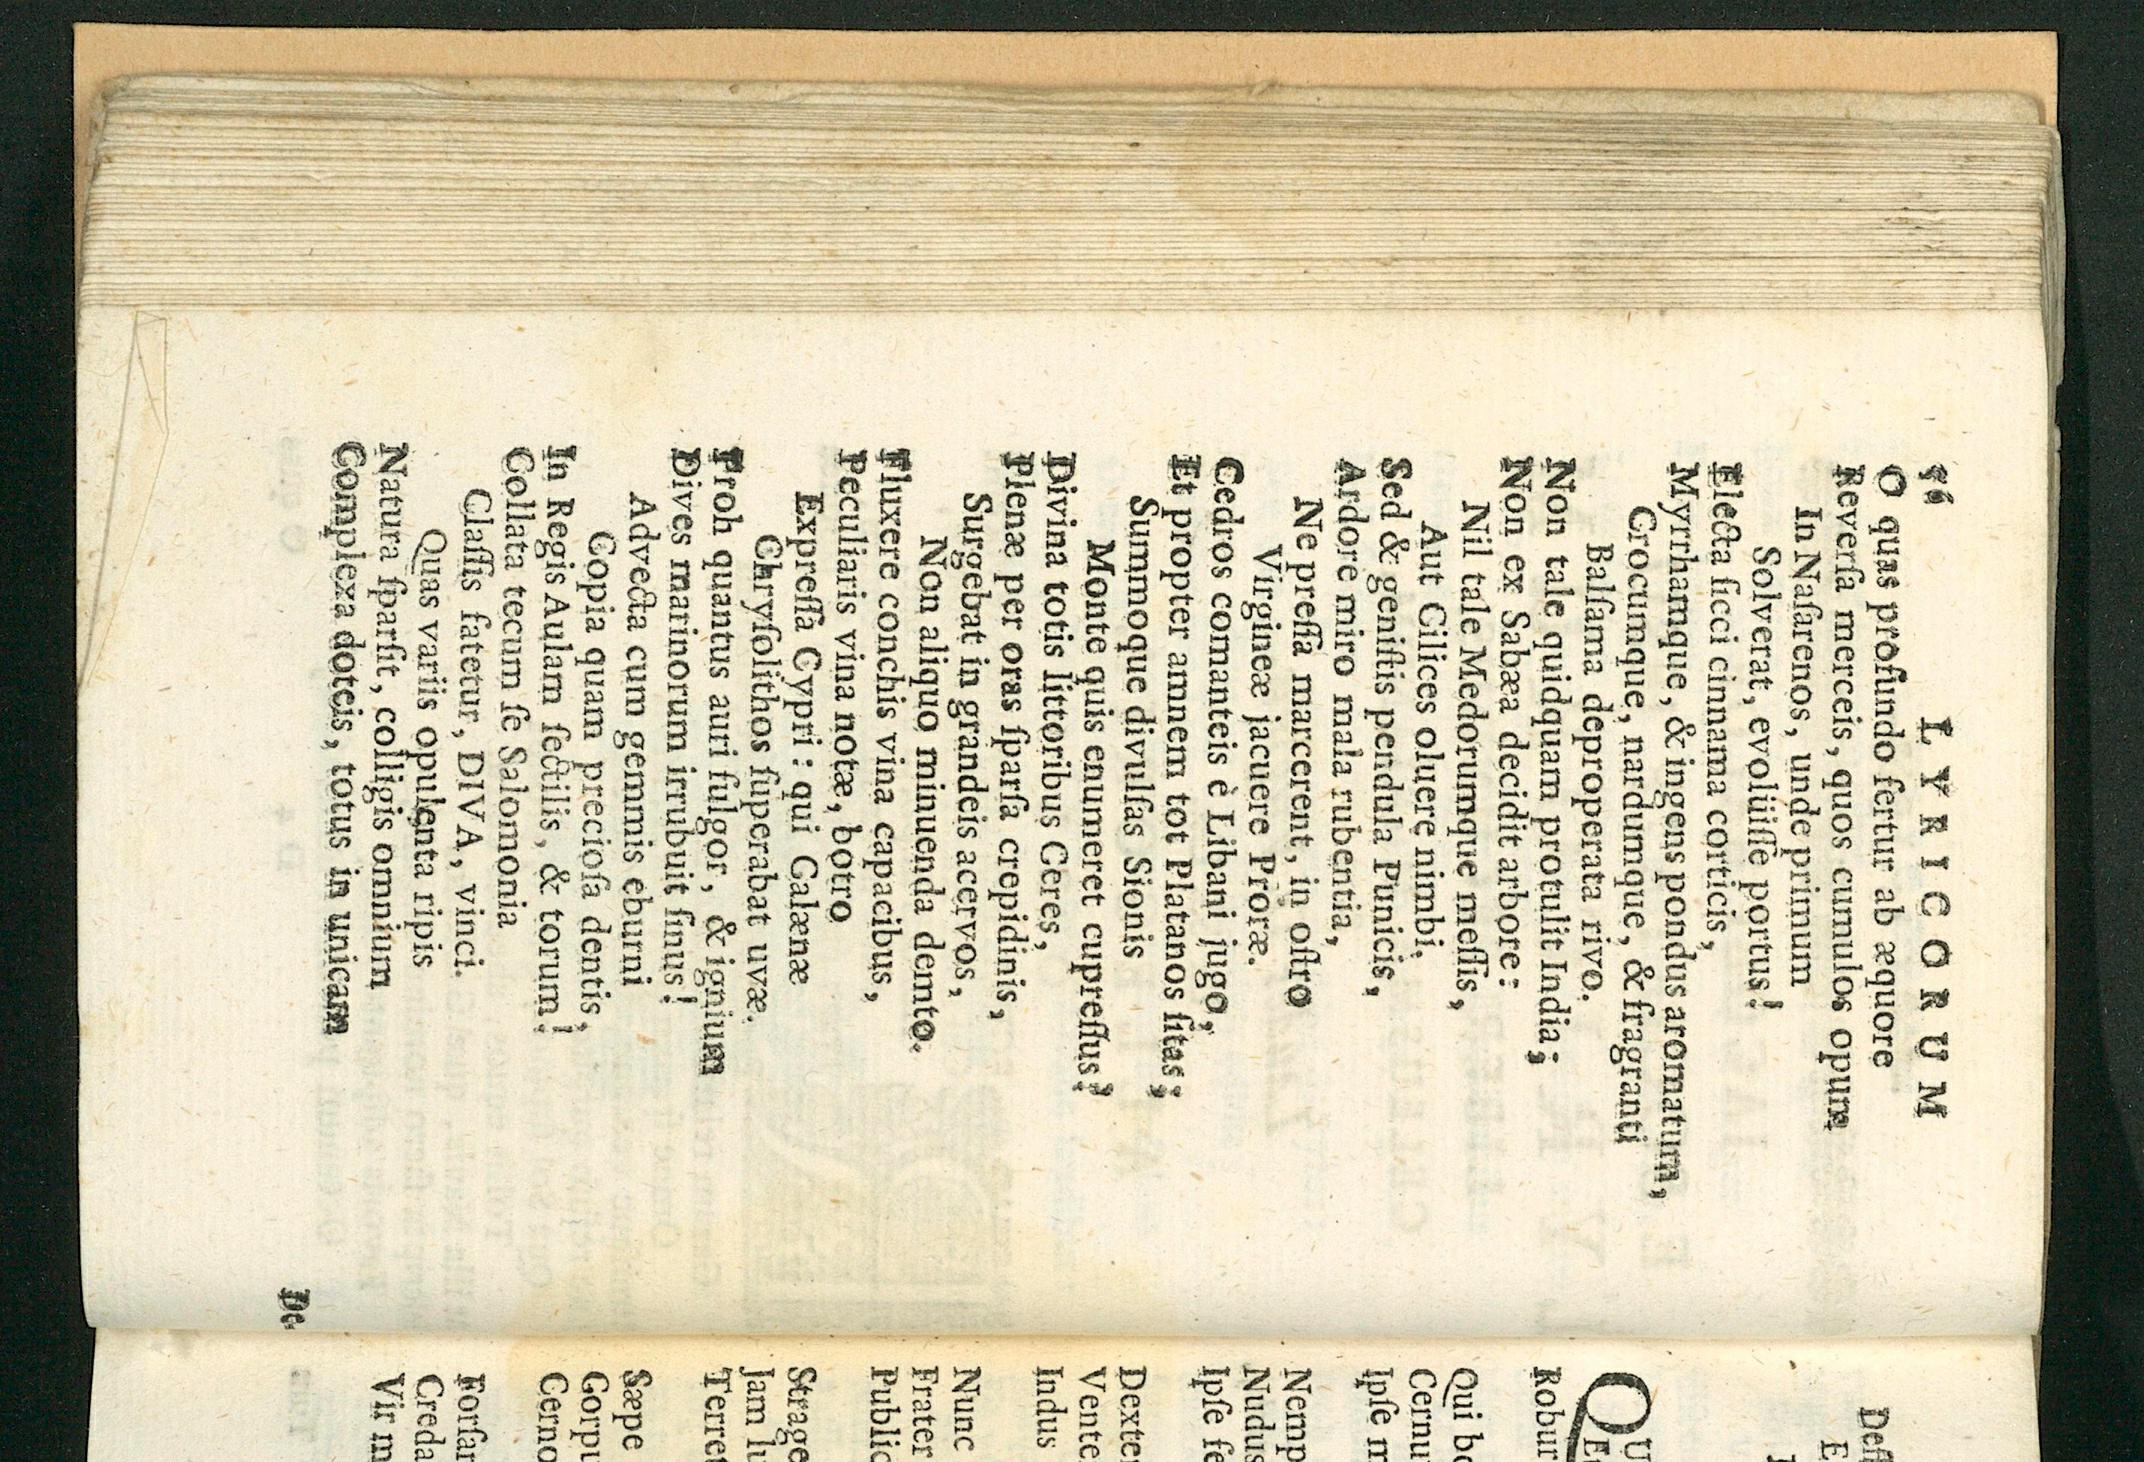 96 LYRICORUM
O quas profundo fertur ab æquore
Reverſa merceis, quos cumulos opum
In Naſarenos, unde primum
Solverat, evolüiſſe portus!
Electa ſicci cinnama corticis,
Myrrhamque, & ingens pondus aromatum,
Crocumque, nardumque, & fragranti
Balſama deproperata rivo.
Non tale quidquam protulit India;
Non ex Sabæa decidit arbore:
Nil tale Medorumque meſſis,
Aut Cilices oluere nimbi.
Sed & geniſtis pendula Punicis,
Ardore miro mala rubentia,
Ne preſſa marcerent, in oſtro
Virgineæ jacuere Proræ.
Cedros comanteis è Libani jugo,
Et propter amnem tot Platanos ſitas;
Summoque divulſas Sionis
Monte quis enumeret cupreſſus?
Divina totis littoribus Ceres,
Plenæ per oras ſparſa crepidinis,
Surgebat in grandeis acervos,
Non aliquo minuenda demto.
Fluxere conchis vina capacibus,
Peculiaris vina notæ, botro
Expreſſa Cypri: qui Galænæ
Chryſolithos ſuperabat uvæ.
Proh quantus auri fulgor, & ignium
Dives marinorum irrubuit ſinus!
Advecta cum gemmis eburni
Copia quam precioſa dentis,
In Regis Aulam ſectilis, & torum!
Collata tecum ſe Salomonia
Claſſis fatetur, DIVA, vinci.
Quas variis opulenta ripis
Natura ſparſit, colligis omnium
Complexa doteis, totus in unicam
De.
Deſ
E
QU
Robur
Qui bo
Cernu
Ipſe m
Nemp
Nudus
Ipſe ſe
Dexter
Vente
Indus
Nunc
Frater
Public
Strage
Jam lu
Terre
Sæpe
Corpu
Cerno
Forſan
Creda
Vir m